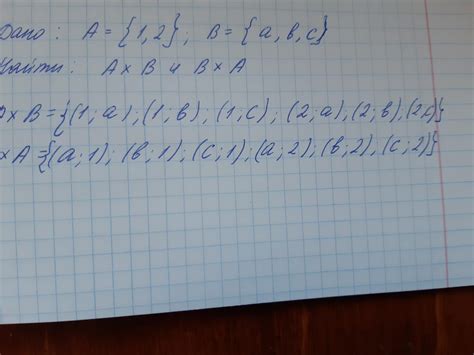 Дано: A = {1,2}; B = {a,b,c}
Найти: A x B и B x A
A x B = {(1;a),(1;b),(1,c),(2;a),(2;b),(2,c)}
x A = {(a;1);(b;1);(c;1);(a;2);(b;2),(c;2)}